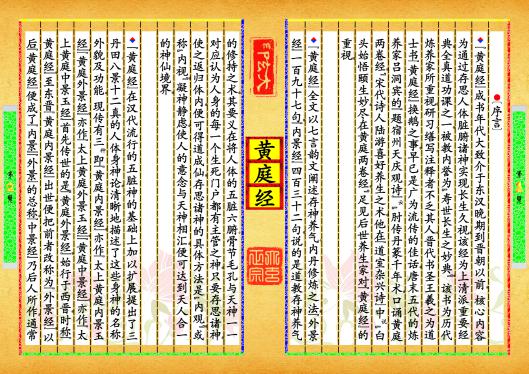 序言
一《黄庭经》成书年代大致介于东汉晚期到晋朝以前，核心内容
为通过存思人体脏腑诸神实现长生久视该经为上清派重要经
典全真道功课之一，被教内誉为"寿世长生之妙典。该书为历代
炼养家所重视研习缮写注释者不乏其人晋代书圣王羲之为道
士书《黄庭经》换鹅之事早已是广为流传的佳话唐末五代的炼
养家吕洞宾的《题宿州天庆观诗》："肘传丹篆千年术口诵黄庭
两卷经。"宋代诗人陆游喜好养生之术他在《道室杂兴诗》中说"白
头始悟颐生妙尽在黄庭两卷经。"足见后世养生家对《黄庭经》的
重视。
一《黄庭经》全文以七言韵文阐述存神养气内丹修炼之法《外景
经》一百九十七句，《内景经》四百三十二句说的是道教存神养气
黄庭经
的修持之术其要义在将人体的五脏六腑骨节毛孔与天神一一
对应认为人身的每一个生死门户都有主管之神只要存思诸神
使之返归体内便可得道成仙存思诸神的具体方法是"内观"，或
称"内视"，凝神静虑使人的意念与天神相汇便可达到天人合一
的神仙境界。
一《黄庭经》在汉代流行的五脏神的基础上加以扩展提出了三
丹田八景十二真的人体身神论清晰地描述了这些身神的名称
外貌及功能，现传有三，即《黄庭内景经》亦作《太上黄庭内景玉
经》，《黄庭外景经》亦作《太上黄庭外景玉经》《黄庭中景经》亦作《太
上黄庭中景玉经》首先传世的是《黄庭外景经》始行于西晋时称
《黄庭经》，至东晋，《黄庭内景经》出世便把前者改称为《外景经》以
后《黄庭经》便成了《内景》《外景》的总称，《中景经》乃后人所作通常